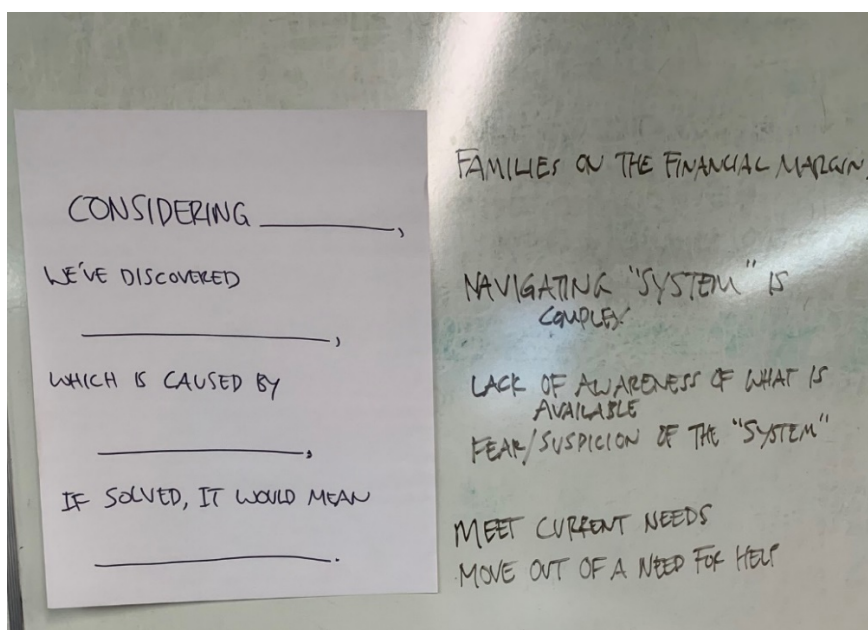 CONSIDERING ___________,
WE'VE DISCOVERED
___________________,
WHICH IS CAUSED BY
________________,
IF SOLVED, IT WOULD MEAN
__________________.
FAMILIES ON THE FINANCIAL MARGIN.
NAVIGATING "SYSTEM" IS
COMPLEX
LACK OF AWARENESS OF WHAT IS
AVAILABLE
FEAR/SUSPICION OF THE "SYSTEM"
MEET CURRENT NEEDS
MOVE OUT OF A NEED FOR HELP